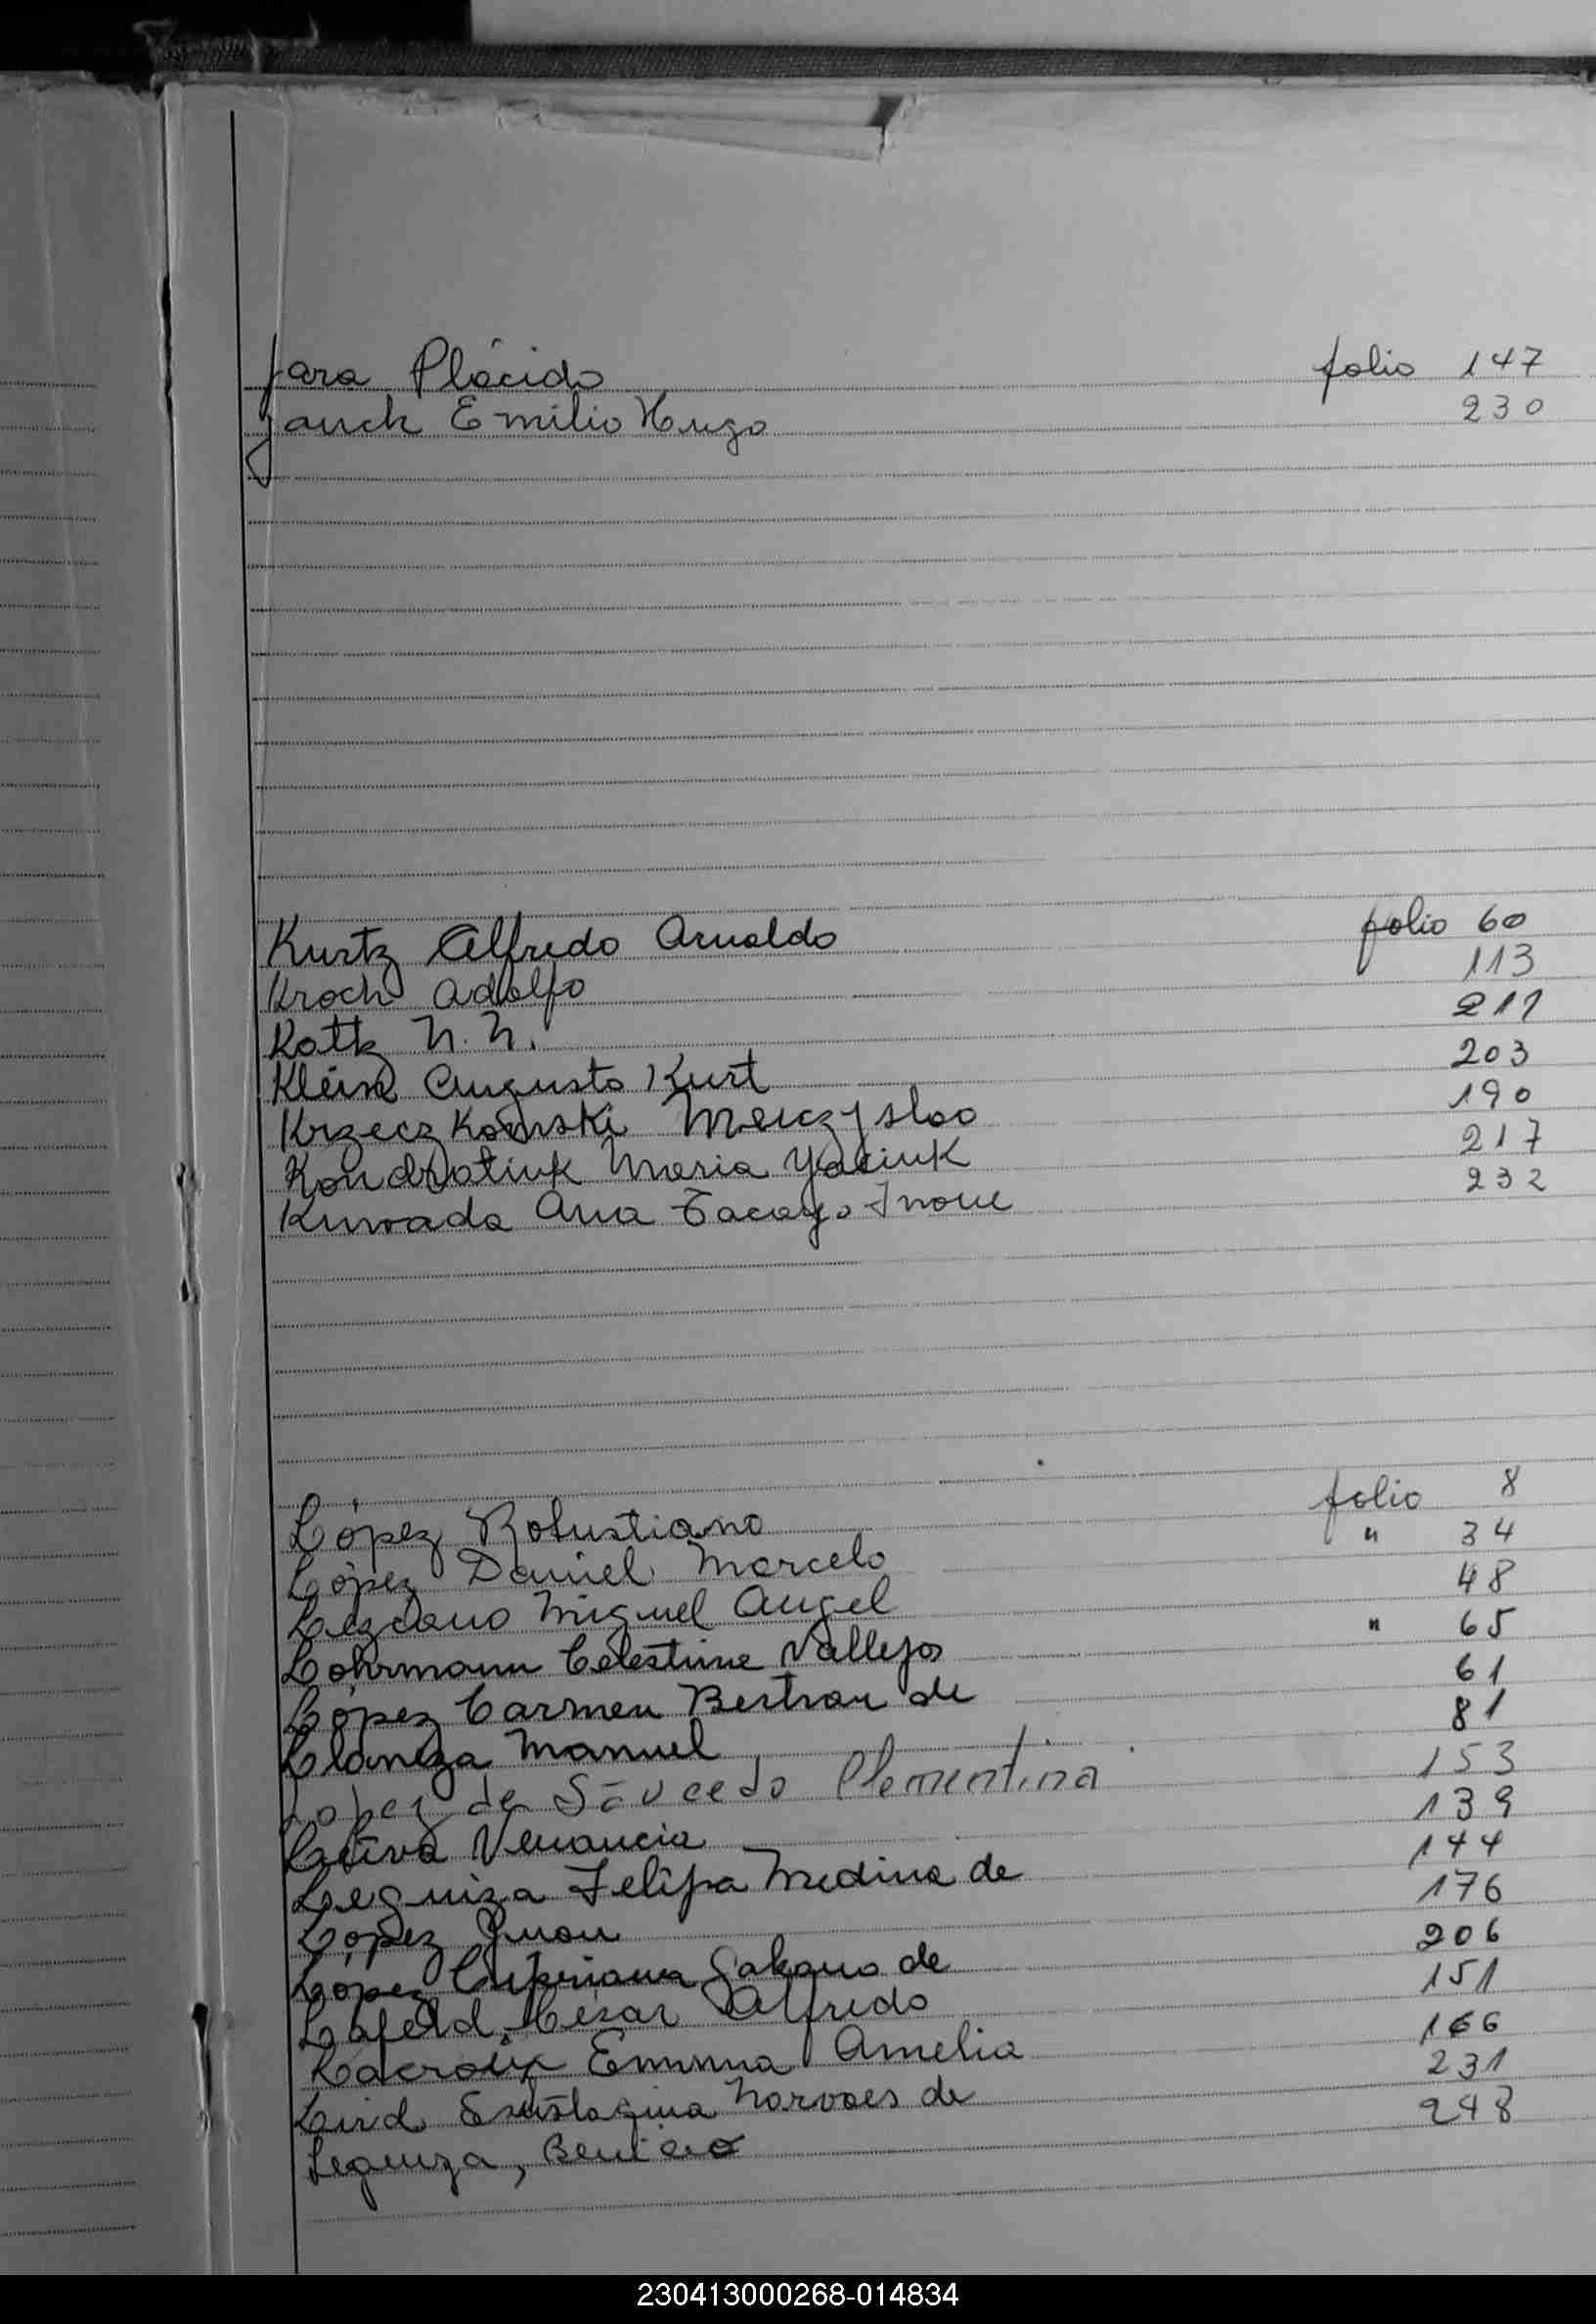 Jara Plácido folio 147
Jauch Emilio Hugo 230
Kurtz Alfredo Arnaldo folio 60
Kroch Adolfo 113
Kottz N. N. 211
Klein Augusto Kurt 203
Krzeczkowski Meiczyslao 190
Kondratiuk Maria Yaciuk 217
Kuwada Ana Tacayo Inoue 232
López Robustiano folio 8
López Daniel Marcelo " 34
Lezcano Miguel Angel 48
Lohrmann Celestina Vallejos " 65
López Carmen Bertran de 61
Llaneza Manuel 81
Lopez de Saucedo Clementina 153
Venancia 139
Leguiza Felipa Medina de 144
López Juan 176
López Cipriana Galeano de 206
Lafeld, César Alfredo 151
Lacroix Emma Amelia 166
Lird Narvaes de 231
Leguiza, Benicio 248
230413000268-014834